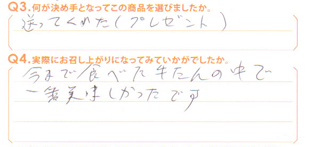 Q3.何が決め手となってこの商品を選びましたか。
送ってくれた(プレゼント)
Q4.実際にお召し上がりになってみていかがでしたか。
今まで食べた牛たんの中で
一番美味しかったです